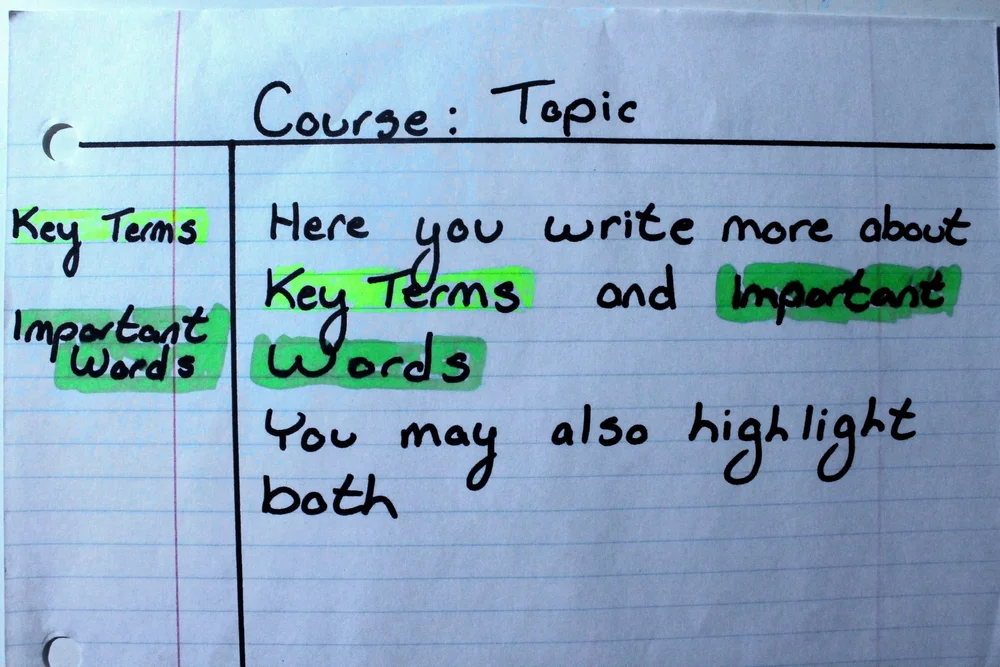 Course: Topic
Key Terms
Important
Words
Here you write more about
Key Terms and Important
Words
You may also highlight
both